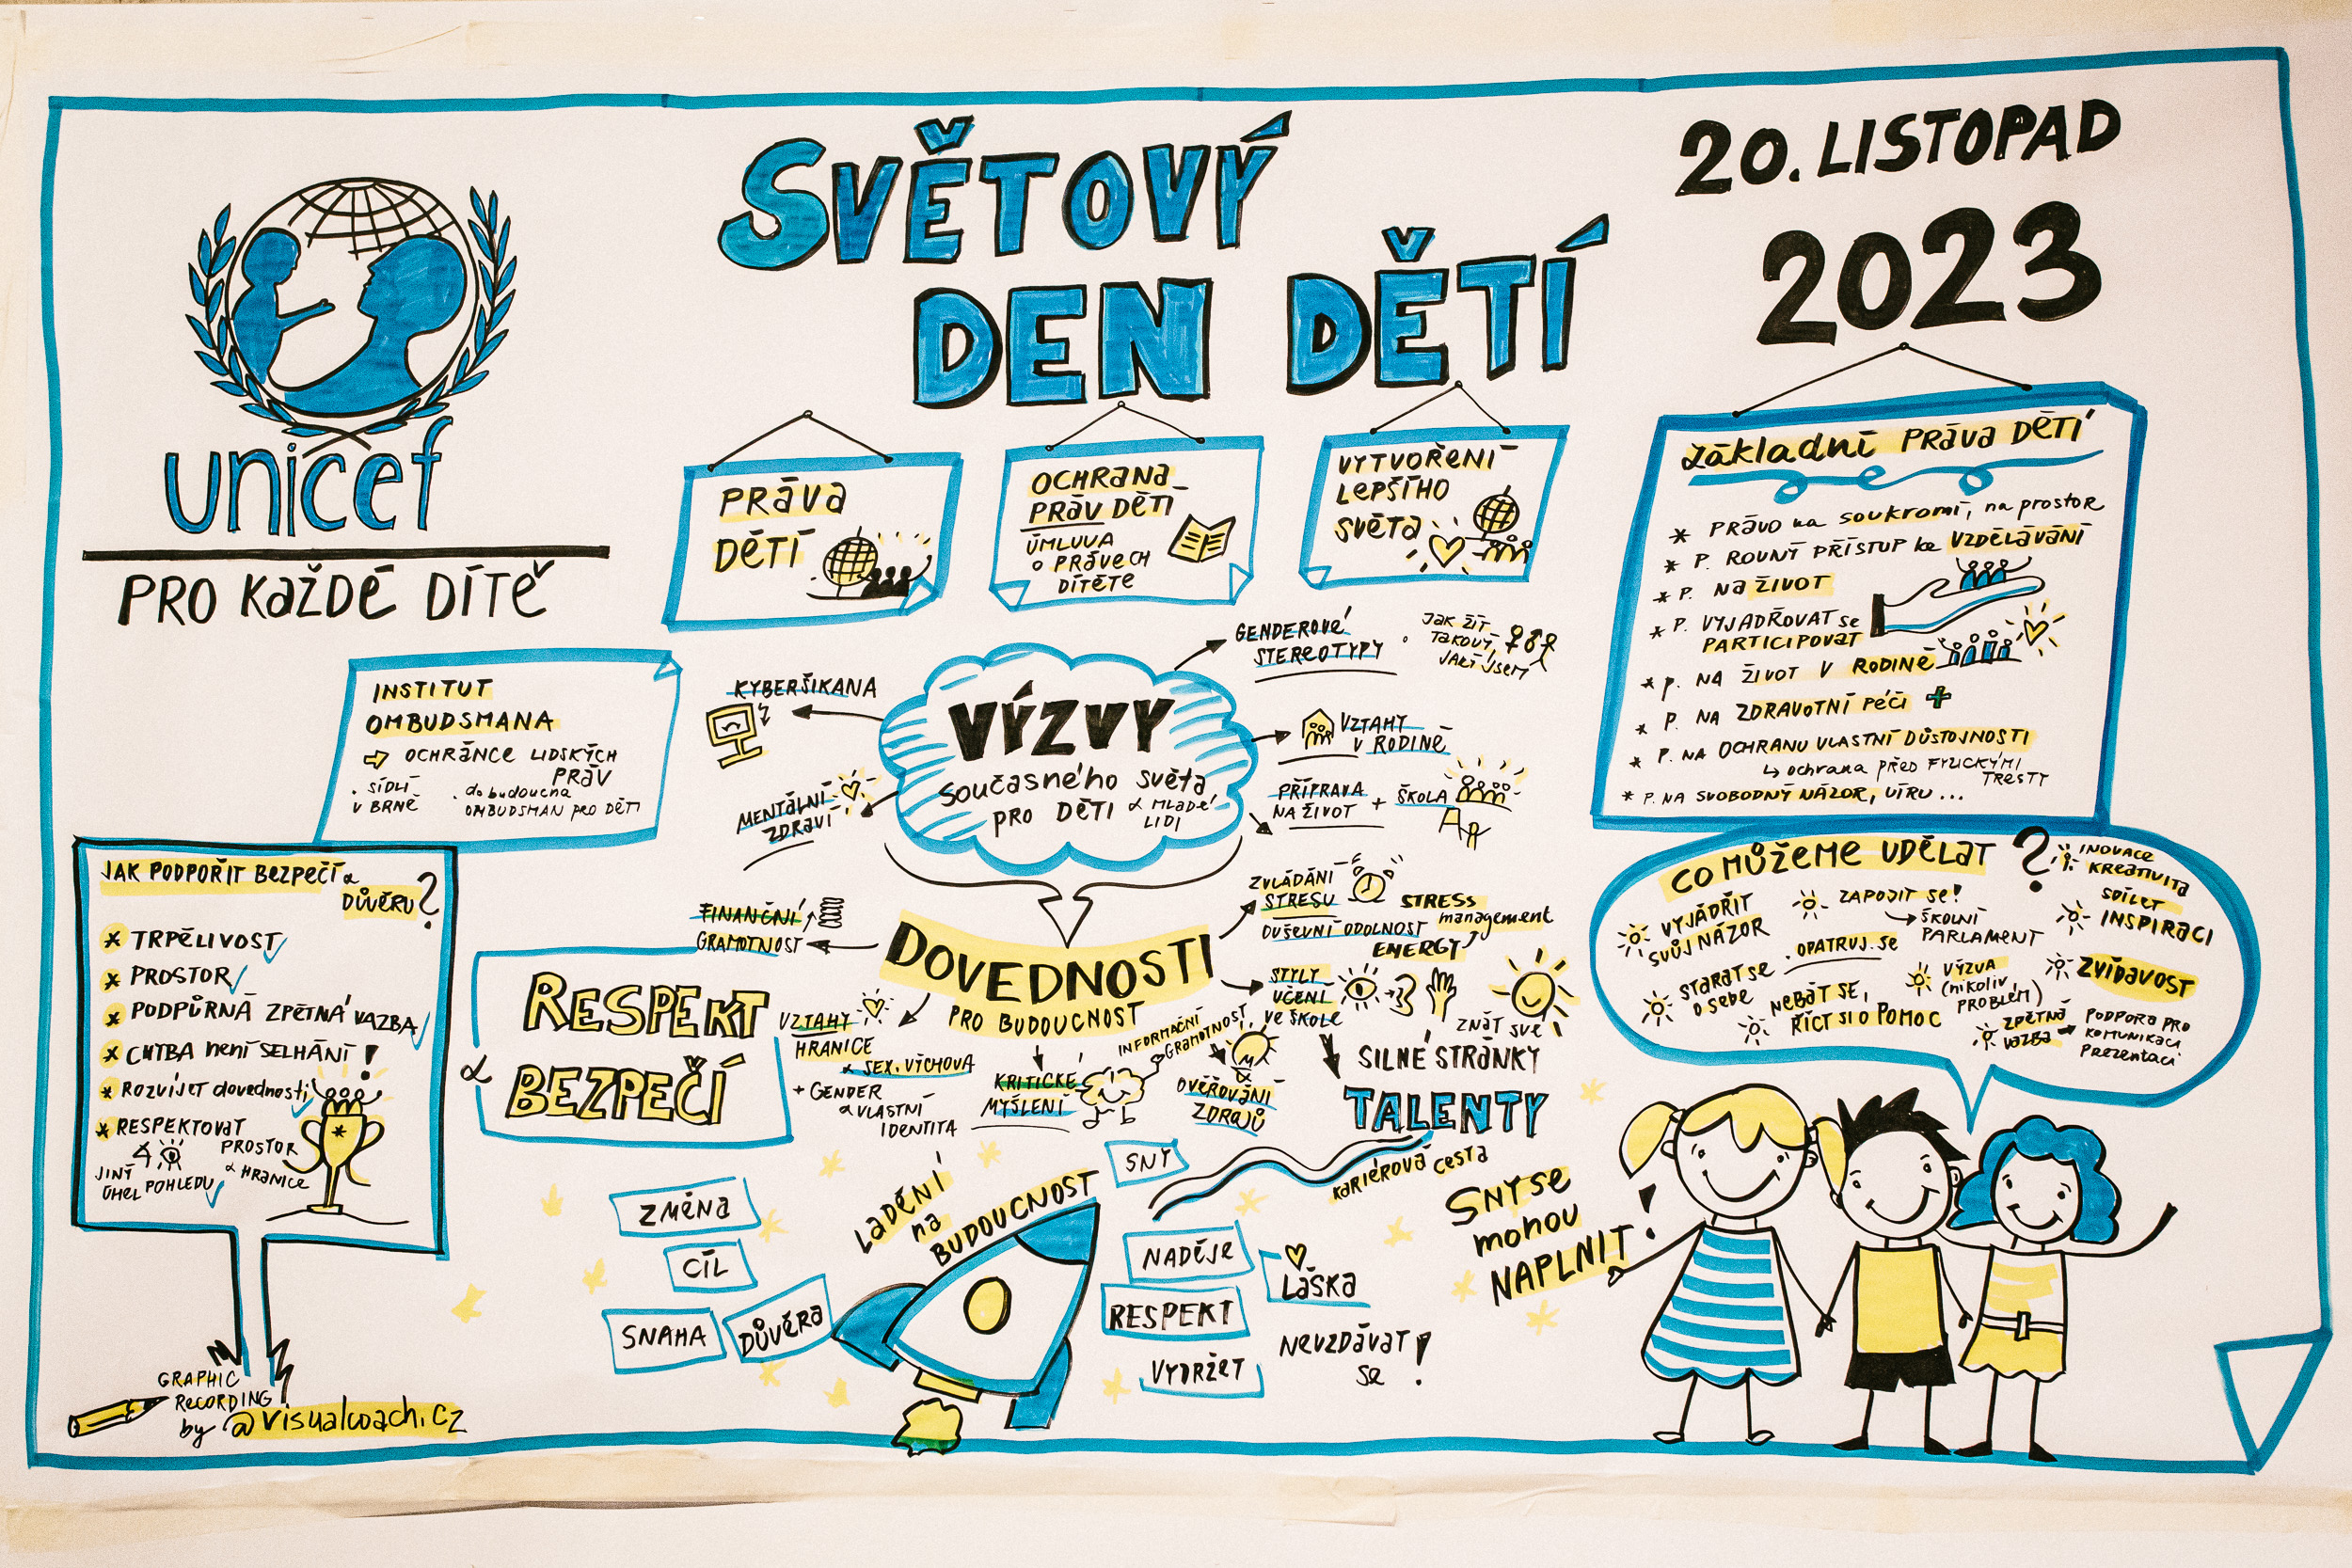 SVĚTOVÝ
DEN DĚTÍ
20. LISTOPAD
2023
unicef
PRO KAŽDÉ DÍTĚ
PRÁVA
DĚTÍ
OCHRANA
PRÁV DĚTÍ
ÚMLUVA
O PRÁVECH
DÍTĚTE
VYTVOŘENÍ
LEPŠÍHO
SVĚTA
ZÁKLADNÍ PRÁVA DĚTÍ
* PRÁVO na SOUKROMÍ, na prostor
* P. ROVNÝ PŘÍSTUP ke VZDĚLÁVÁNÍ
* P. NA ŽIVOT
* P. VYJADŘOVAT se
PARTICIPOVAT
* P. NA ŽIVOT V RODINĚ
* P. NA ZDRAVOTNÍ PÉČI
* P. NA OCHRANU VLASTNÍ DŮSTOJNOSTI
↳ ochrana PŘED FYZICKÝMI
TRESTY
* P. NA SVOBODNÝ NÁZOR, VÍRU...
INSTITUT
OMBUDSMANA
⇒ OCHRÁNCE LIDSKÝCH
PRÁV
. SÍDLÍ
V BRNĚ
. do budoucna
OMBUDSMAN PRO DĚTI
VÝZVY
současného světa
PRO DĚTI & MLADÉ
LIDI
KYBERŠIKANA
MENTÁLNÍ
ZDRAVÍ
GENDEROVÉ
STEREOTYPY
. JAK ŽÍT
TAKOVÝ,
JAKÝ JSEM
VZTAHY
V RODINĚ
PŘÍPRAVA
NA ŽIVOT + ŠKOLA
JAK PODPOŘIT BEZPEČÍ &
DŮVĚRU?
* TRPĚLIVOST
* PROSTOR
* PODPŮRNÁ ZPĚTNÁ VAZBA
* CHYBA není SELHÁNÍ!
* ROZVÍJET dovednosti
* RESPEKTOVAT
JINÝ
ÚHEL POHLEDU
PROSTOR
& HRANICE
RESPEKT
& BEZPEČÍ
DOVEDNOSTI
PRO BUDOUCNOST
FINANČNÍ
GRAMOTNOST
VZTAHY
HRANICE
& SEX. VÝCHOVA
+ GENDER
& VLASTNÍ
IDENTITA
KRITICKÉ
MYŠLENÍ
INFORMAČNÍ
GRAMOTNOST
OVĚŘOVÁNÍ
ZDROJŮ
ZVLÁDÁNÍ
STRESU
DUŠEVNÍ ODOLNOST
STRESS
management
ENERGY
STYLY
UČENÍ
VE ŠKOLE
ZNÁT SVÉ
SILNÉ STRÁNKY
TALENTY
KARIÉROVÁ CESTA
CO MŮŽEME UDĚLAT ?
VYJÁDŘIT
SVŮJ NÁZOR
ZAPOJIT SE!
ŠKOLNÍ
PARLAMENT
INOVACE
KREATIVITA
SDÍLET
INSPIRACI
. OPATRUJ. SE
STARAT SE
O SEBE
NEBÁT SE,
ŘÍCT SI O POMOC
VÝZVA
(nikoliv
PROBLÉM)
ZVÍDAVOST
ZPĚTNÁ
VAZBA
PODPORA PRO
KOMUNIKACI
PREZENTACI
LADĚNÍ
na
BUDOUCNOST
SNY
ZMĚNA
CÍL
SNAHA
DŮVĚRA
NADĚJE
LÁSKA
RESPEKT
VYDRŽET
NEVZDÁVAT
SE!
SNY SE
mohou
NAPLNIT!
GRAPHIC
RECORDING
by @visualcoach.cz